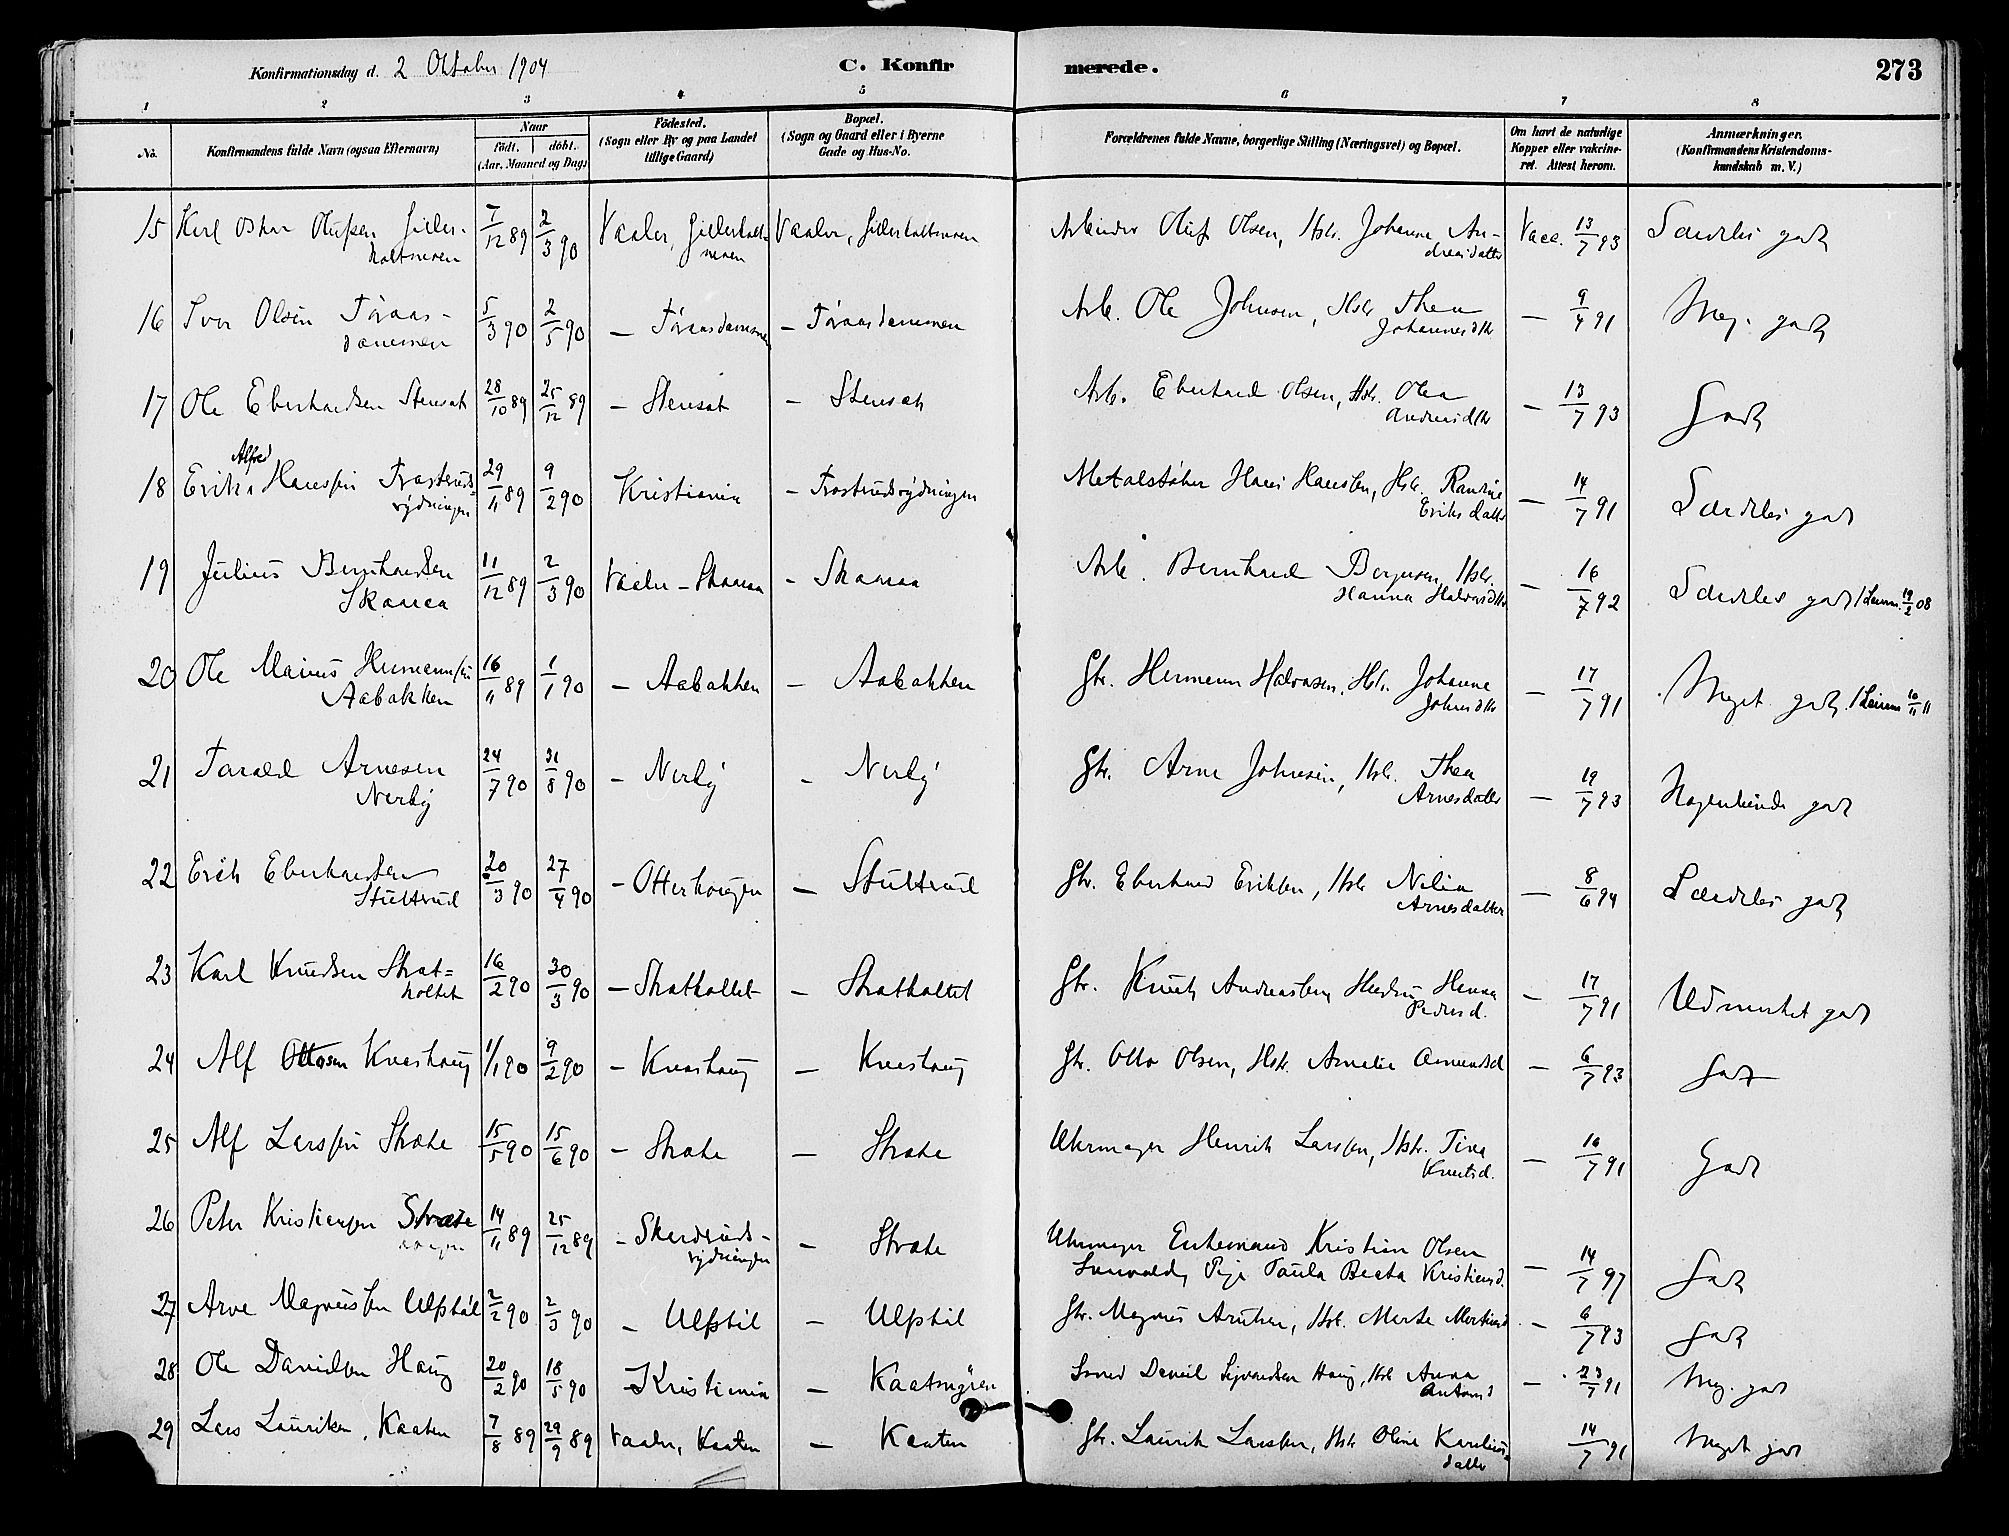 Konfirmationsdag d. 2 Oktober 1904 C. Konfirmerede. 273
1 2 3 4 5 6 7 8
No. Konfirmandens fulde Navn (ogsaa Efternavn) Naar Födt. döbt. (Aar, Maaned og Dag) Födested. (Sogn eller By og paa Landet tillige Gaard) Bopæl. (Sogn og Gaard eller i Byerne Gade og Hus-No. Forældrenes fulde Navne, borgerlige Stilling (Næringsvei) og Bopæl. Om havt de naturlige Kopper eller vakcineret. Attest herom. Anmærkninger. (Konfirmandens Kristendomskundskab m. V.)
15 Karl Oskar Olufsen 7/12 89 2/3 90 Vaaler, Vaaler, Arbeider Oluf Olsen, Hstr. Johanne Andreasdatter Vacc. 13/7 93 Særdeles godt
16 Olsen 5/3 90 2/5 90 — — Arb. Ole Johnsen, Hstr. Thea Johannesdtr — 9/4 91 Meg. godt
17 Ole Eberhardsen Stensat 28/10 89 25/12 89 — Stensat — Stensat Arb. Eberhard Olsen, Hstr. Olea Andreasdtr — 13/7 93 Godt
18 Erik Alfred Hanssen Trostrudsrydningen 29/11 89 9/2 90 Kristiania — Trostrudsrydningen Metalstøber Hans Hansen, Hstr. Randine Eriksdatter — 14/7 91 Særdeles godt
19 Julius Bernhardsen Skaaraa 11/12 89 2/3 90 Vaaler — Skaaraa — Skaaraa Arb. Bernhard Borgersen, Hstr. Hanna Halvorsdtr — 16/7 92 Særdeles godt /Leum. 19/2 08
20 Ole Marius Hermannsen Aabakken 16/11 89 1/1 90 — Aabakken — Aabakken Gbr. Hermann Halvorsen, Hstr. Johanne Johnsdtr — 17/7 91 Meget godt. /Leum 10/11 11
21 Tarald Arnesen Nerby 24/7 90 31/8 90 — Nerby — Nerby Gbr. Arne Johnsen, Hstr. Thea Arnesdatter — 19/7 93 godt
22 Erik Eberhardsen Stultrud 20/3 90 27/4 90 — Otterhougen — Stultrud Gbr. Eberhard Eriksen, Hstr Nilia Arnesdatter — 8/6 94 Særdeles godt
23 Karl Knudsen Skatholtet 16/2 90 30/3 90 — Skatholtet — Skatholtet Gbr. Knut Andreassen, Hustru Hanna Pedersd. — 17/7 91 Udmerket godt
24 Alf Ottosen Kveshoug 1/1 90 9/2 90 — Kveshoug — Kveshoug Gbr. Otto Olsen, Hstr. Amalie Amundsd — 6/7 93 Godt
25 Alf Larssen Stræte 15/5 90 15/6 90 — Stræte — Stræte Uhrmager Henrik Larssen, Hstr. Tina Knutsd. — 16/7 91 Godt
26 Peter Kristiansen Stræte 14/11 89 25/12 89 — Skardsrudsrydningen — Stræte Uhrmager Enkemand Kristian Olsen Pige Paula Beata Kristiansd. — 14/7 97 Godt
27 Arve Magnussen Ulfstøl 2/2 90 2/3 90 — Ulfstøl — Ulfstøl Gbr. Magnus Arntsen, Hstr. Marte — 6/7 93 Godt
28 Ole Davidsen Haug 20/2 90 18/5 90 — Kristiania — Smed Daniel Sigvardsen Haug, Hstr Anna Antonsd — 23/7 91 Meg. godt
29 Lars Lauritsen, Kaaten 7/8 89 29/9 89 Vaaler, Kaaten — Kaaten Gbr. Laurits Larssen, Hstr Oline Karelius datter 14/7 91 Meget godt